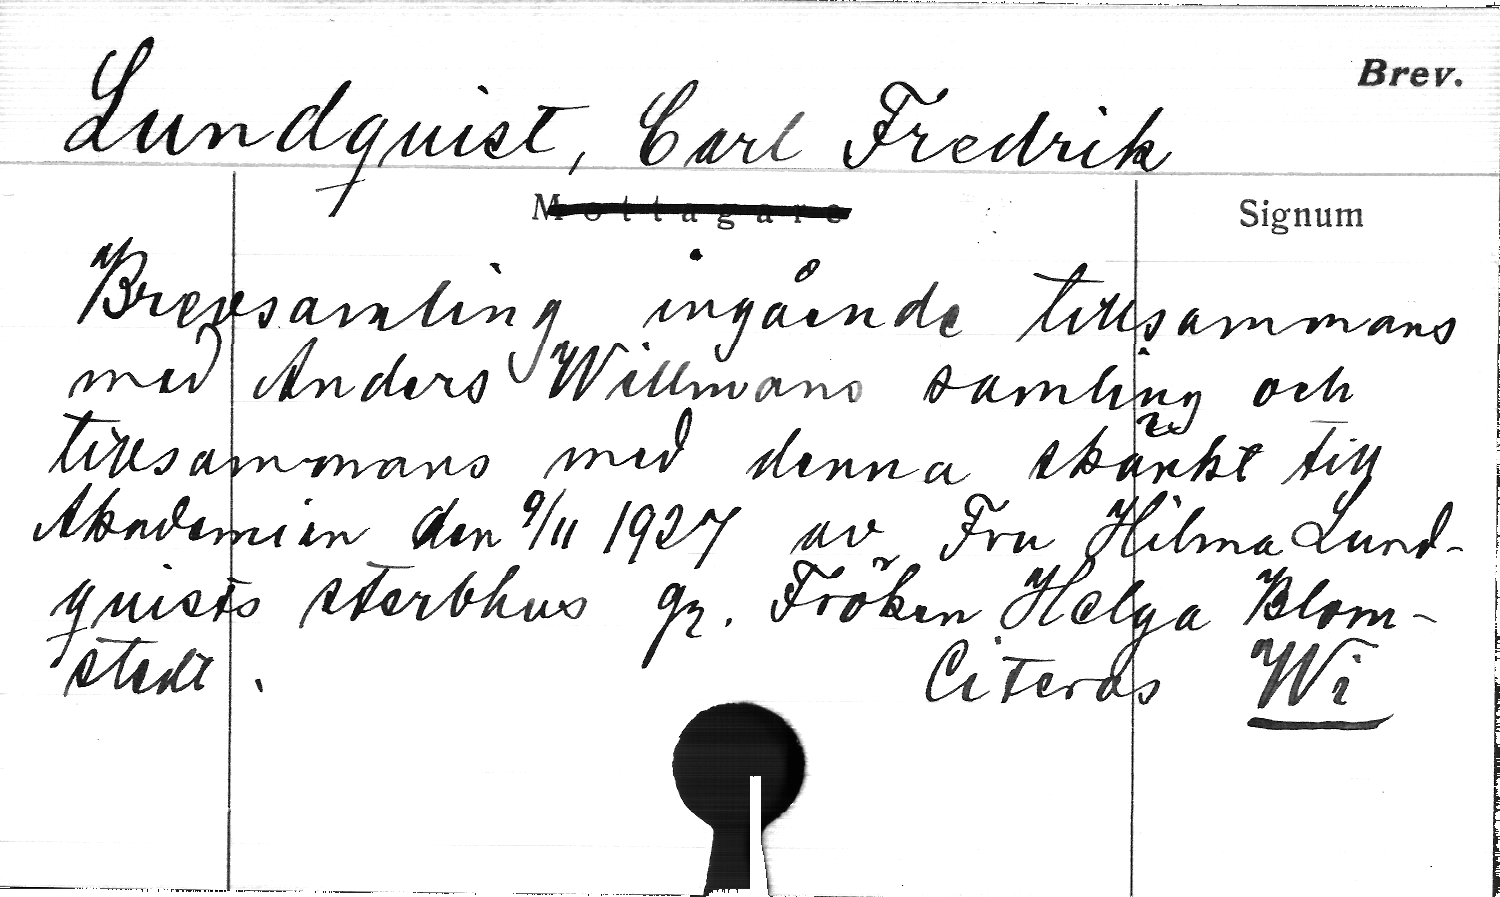 Brev.
Lundquist, Carl Fredrik
Mottagare
Signum
Brevsamling ingående tillsammans
med Anders Willmans samling och
tillsammans med denna skänkt till
Akademien den 9/11 1927 av Fru Hilma Lund-
quists sterbhus gz. Fröken Helga Blom-
stedt. Citeras Wi